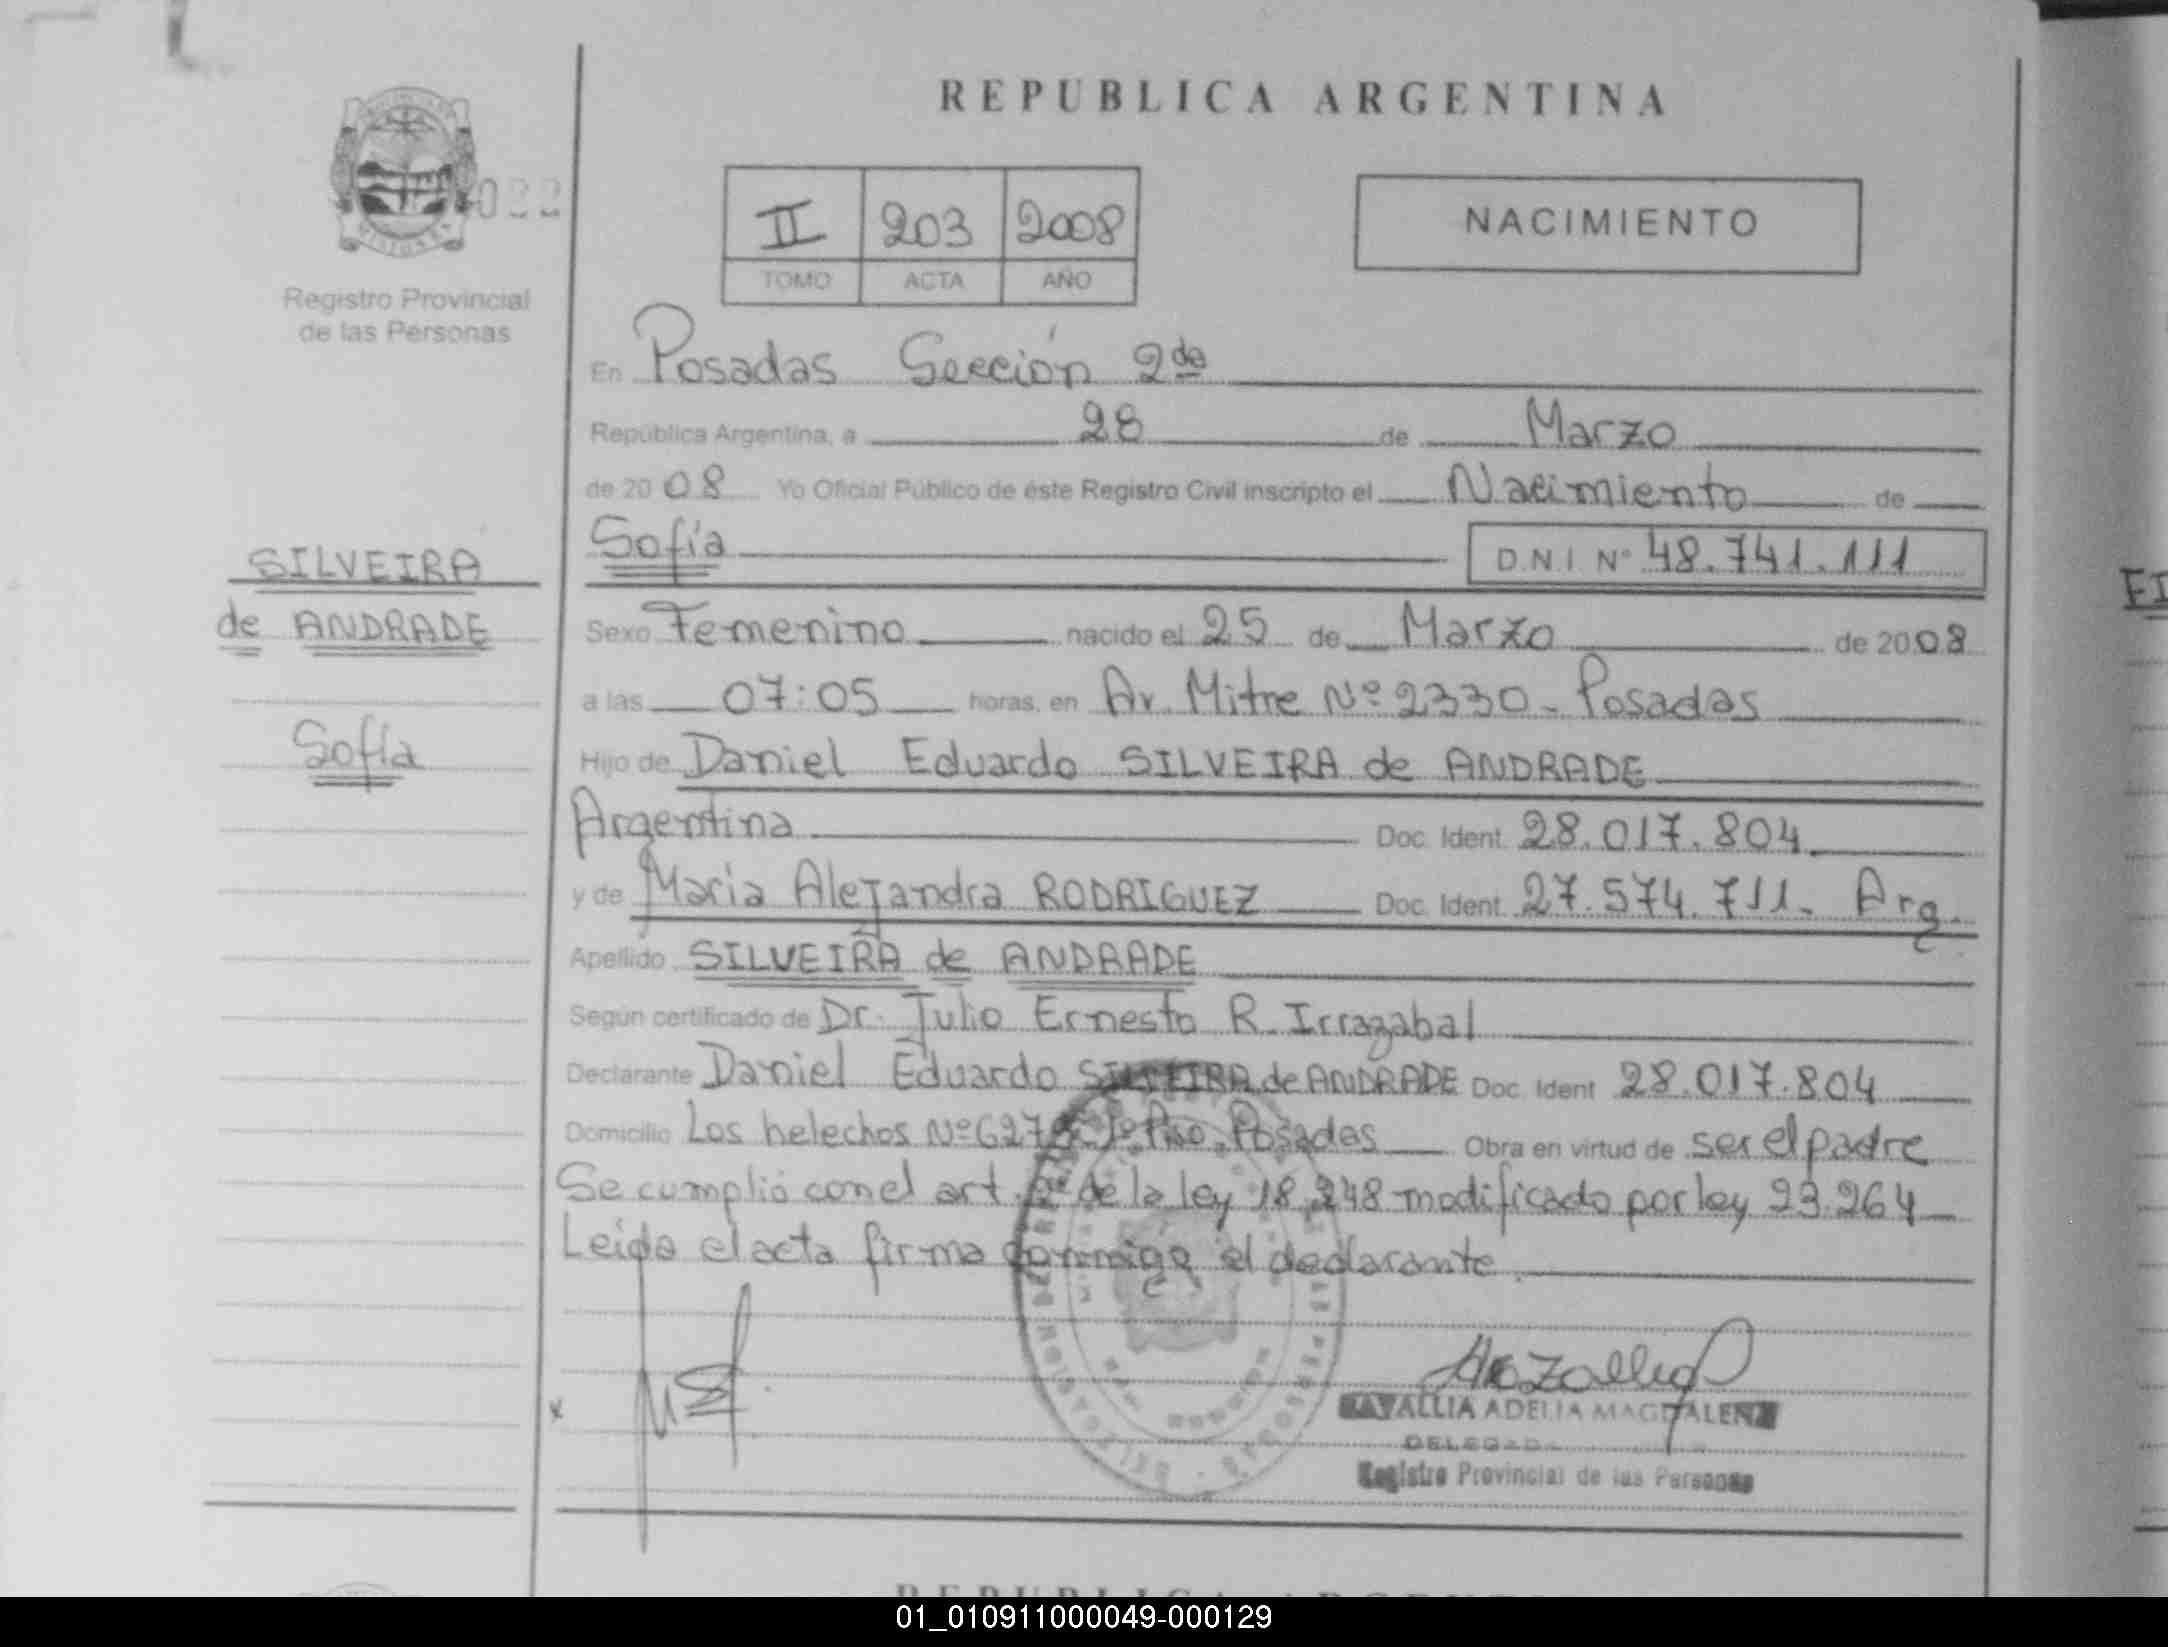 REPUBLICA ARGENTINA
022
Registro Provincial
de las Personas
II 203 2008
TOMO ACTA AÑO
NACIMIENTO
En Posadas Sección 2da
República Argentina, a 28 de Marzo
de 2008 Yo Oficial Público de éste Registro Civil inscripto el Nacimiento de
Sofía D.N.I. Nº 48.741.111
SILVEIRA
de ANDRADE
Sofía
Sexo Femenino nacido el 25 de Marzo de 2008
a las 07:05 horas, en Av. Mitre Nº 2330 - Posadas
Hijo de Daniel Eduardo SILVEIRA de ANDRADE
Argentina Doc. Ident. 28.017.804
y de Maria Alejandra RODRIGUEZ Doc. Ident. 27.574.711. Arg.
Apellido SILVEIRA de ANDRADE
Según certificado de Dr. Julio Ernesto R. Irrazabal
Declarante Daniel Eduardo SILVEIRA de ANDRADE Doc. Ident 28.017.804
Domicilio Los helechos Posadas Obra en virtud de ser el padre
Se cumplió con el art. de la ley 18.248 modificado por ley 23.264
Leida el acta firma conmigo el declarante.
ADELIA MAGDALENA
DELEGADA
Registro Provincial de las Personas
01_010911000049-000129